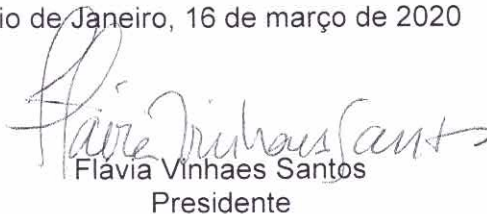 io de Janeiro, 16 de março de 2020
Flávia Vinhaes Santos
Flávia Vinhaes Santos
Presidente